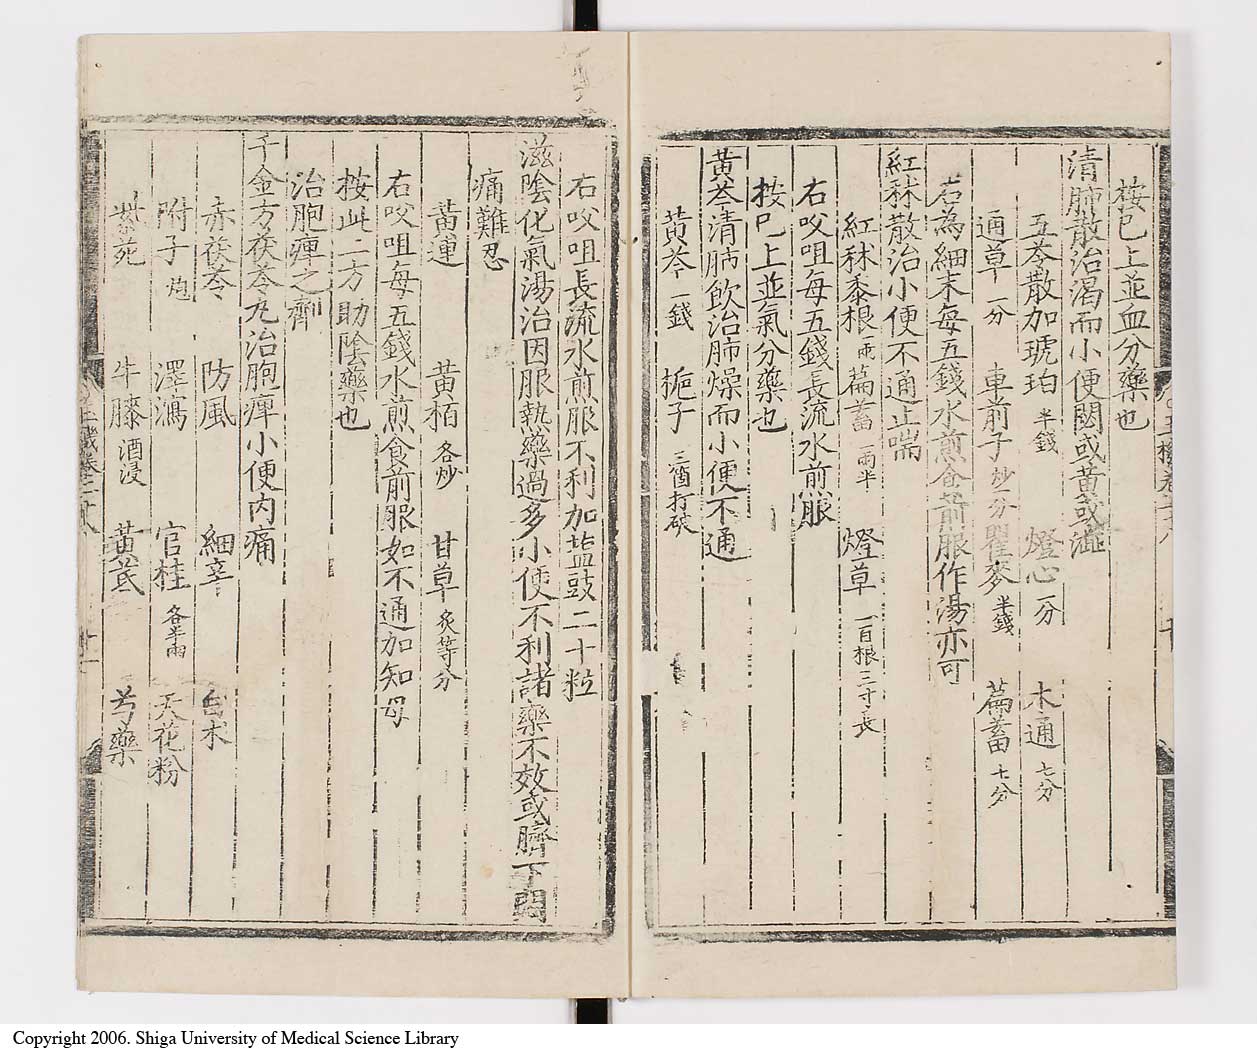 按已上並血分藥也
清肺散治渴而小便閟或黄或澁
五苓散加琥珀半錢 燈心一分 木通七分
通草一分 車前子炒一分 瞿麥半錢 萹蓄七分
右為細末每五錢水煎食前服作湯亦可
紅秫散治小便不通上喘
紅秫黍根一兩 萹蓄一兩半 燈草一百根三寸長
右㕮咀每五錢長流水煎服
按已上並氣分藥也
黄芩清肺飲治肺燥而小便不通
黄芩一錢 梔子三箇打破
右㕮咀長流水煎服不利加盐豉二十粒
滋陰化氣湯治因服熱藥過多小便不利諸藥不效或臍下悶
痛難忍
黄連 黄栢各炒 甘草炙等分
右㕮咀每五錢水煎食前服如不通加知母
按此二方助陰藥也
治胞痺之劑
千金方茯苓丸治胞痺小便内痛
赤茯苓 防風 細辛 白朮
附子炮 澤瀉 官桂各半兩 天花粉
紫菀 牛膝酒浸 黄芪 芍藥
Copyright 2006. Shiga University of Medical Science Library